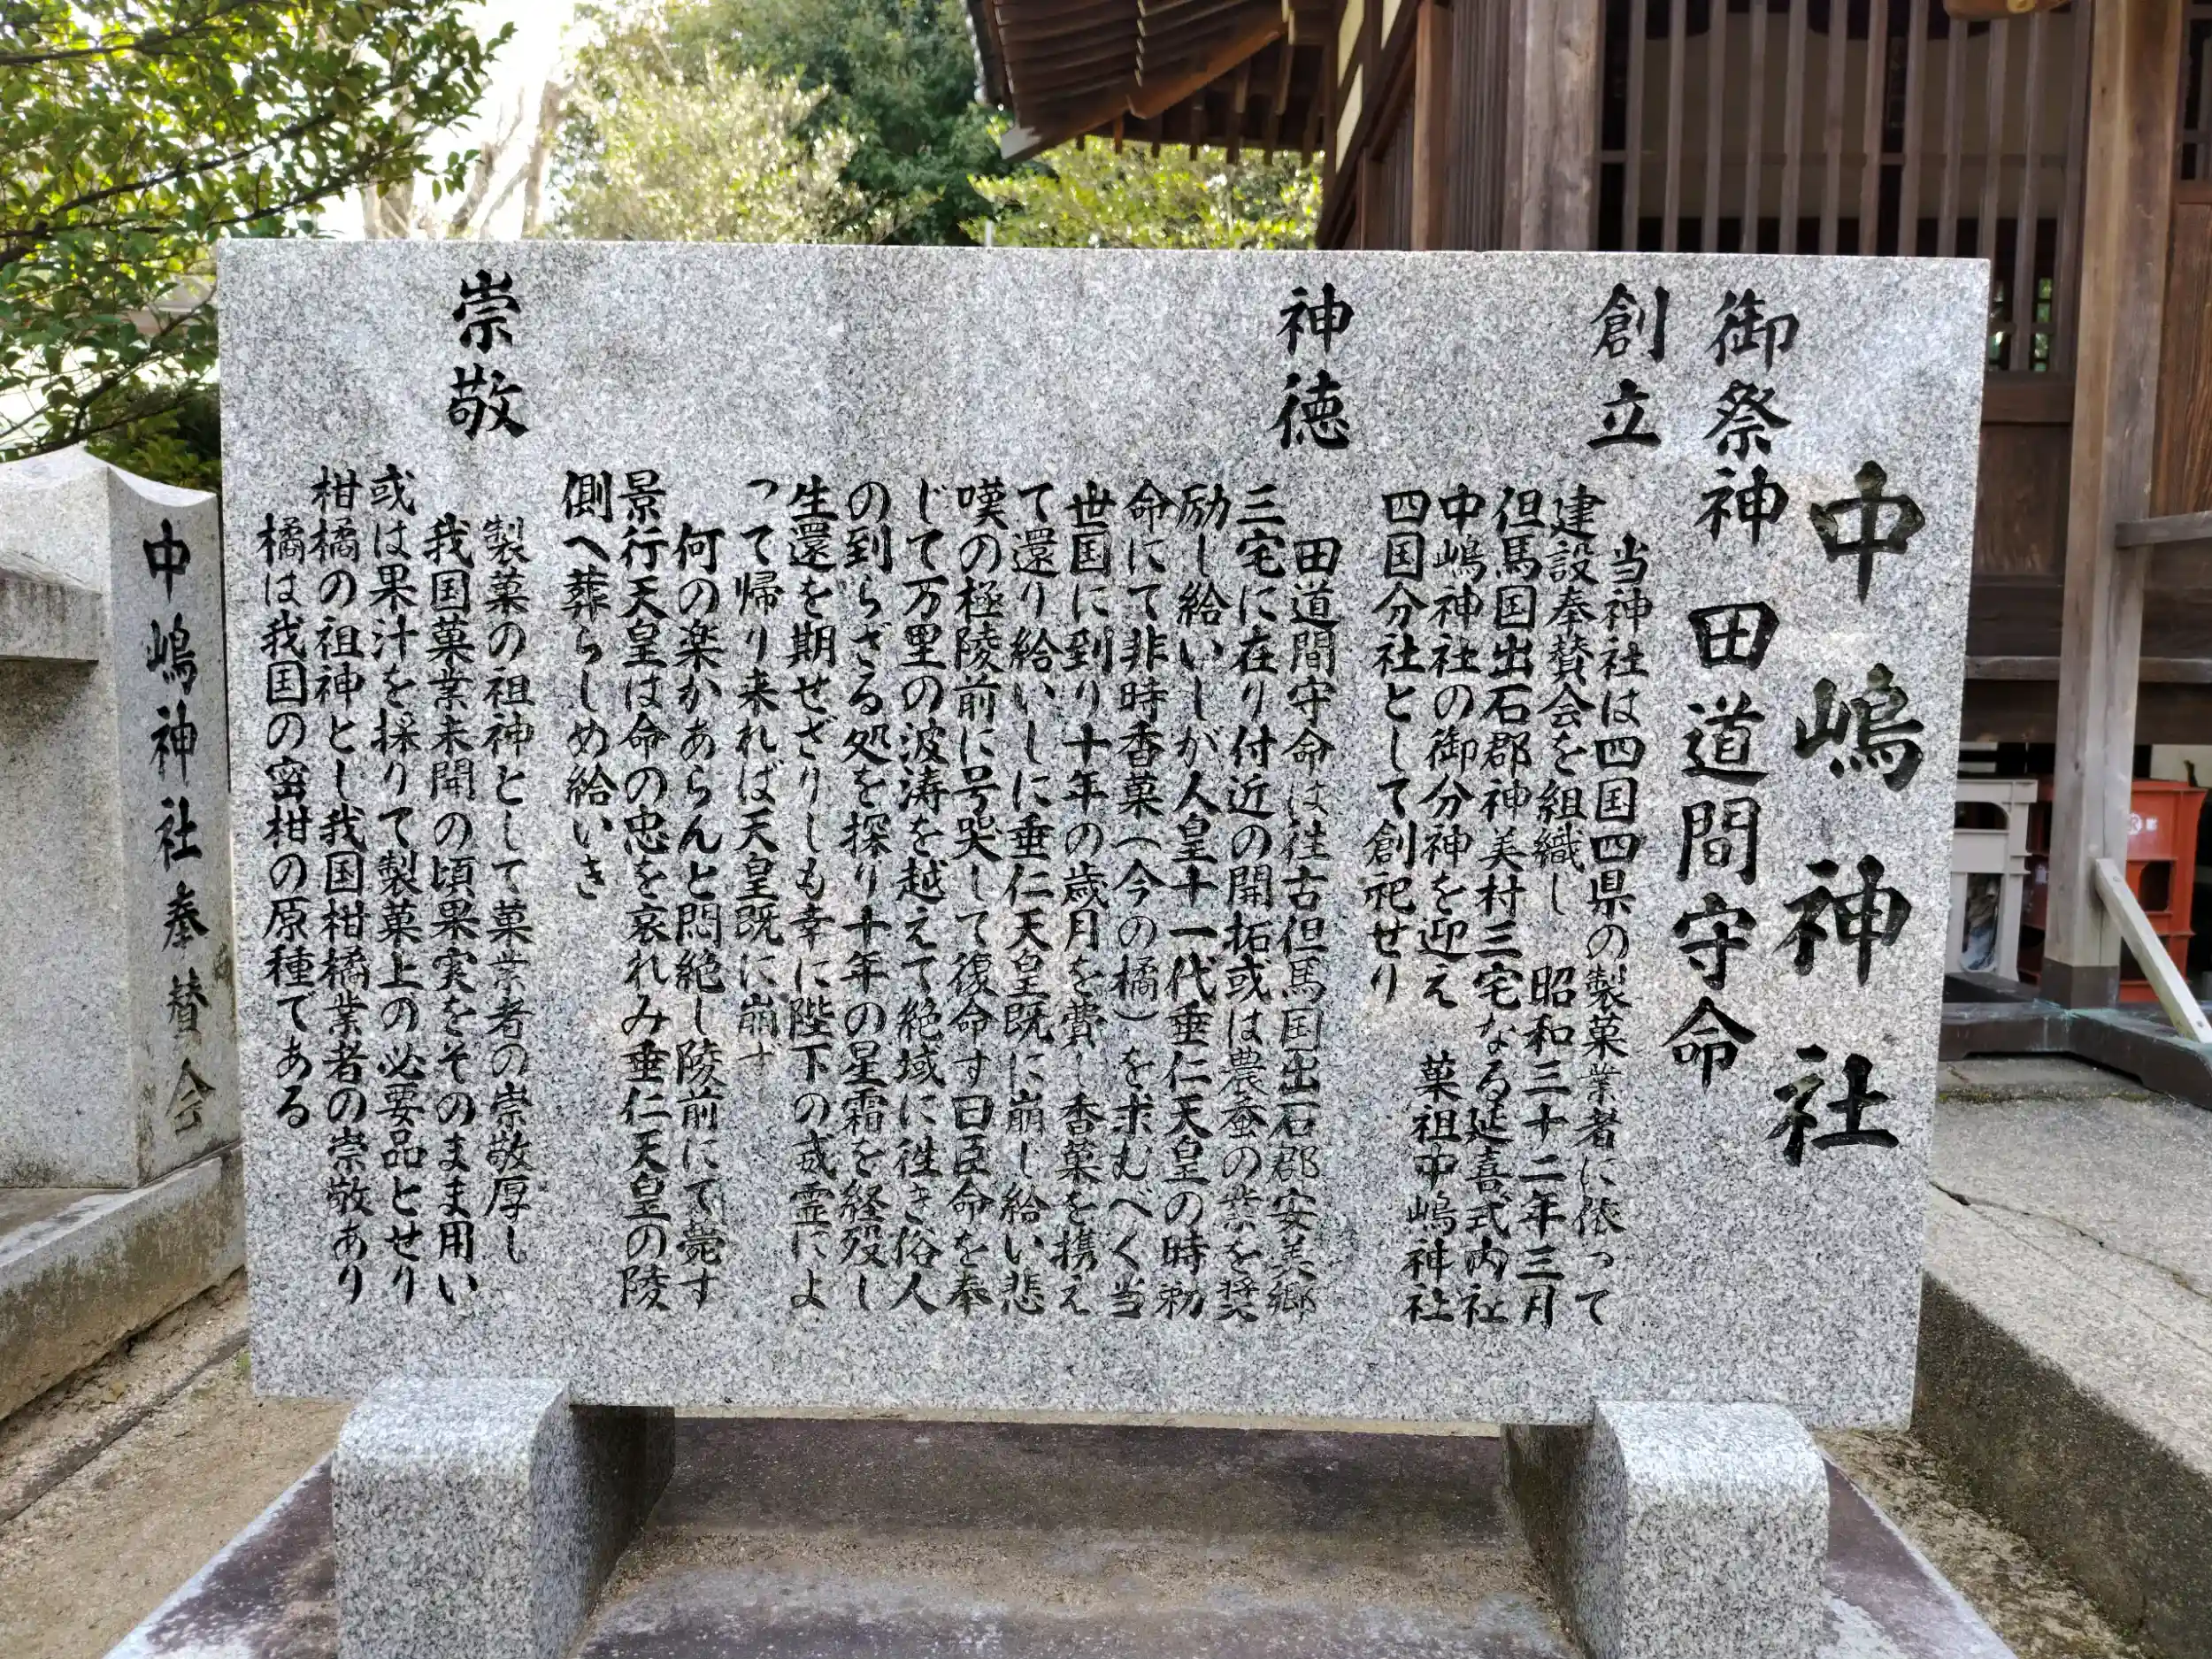 中嶋神社
御祭神 田道間守命
創立
当神社は四国四県の製菓業者に依って
建設奉賛会を組織し 昭和三十二年三月
但馬国出石郡神美村三宅なる延喜式内社
中嶋神社の御分神を迎え 菓祖中嶋神社
四国分社として創祀せり
神徳
田道間守命は往古但馬国出石郡安美郷
三宅に在り付近の開拓或は農蚕の業を奨
励し給いしが人皇十一代垂仁天皇の時勅
命にて非時香菓(今の橘)を求むべく当
世国に到り十年の歳月を費し香菓を携え
て還り給いしに垂仁天皇既に崩じ給い悲
嘆の極陵前に号哭して復命す曰臣命を奉
じて万里の波涛を越えて絶域に往き俗人
の到らざる処を探り十年の星霜を経歿し
生還を期せざりしも幸に陛下の威霊によ
って帰り来れば天皇既に崩す
何の楽かあらんと悶絶し陵前にて薨す
景行天皇は命の忠を哀れみ垂仁天皇の陵
側へ葬らしめ給いき
崇敬
製菓の祖神として菓業者の崇敬厚し
我国菓業未開の頃果実をそのまま用い
或は果汁を採りて製菓上の必要品とせり
柑橘の祖神とし我国柑橘業者の崇敬あり
橘は我国の蜜柑の原種である
中嶋神社奉賛会